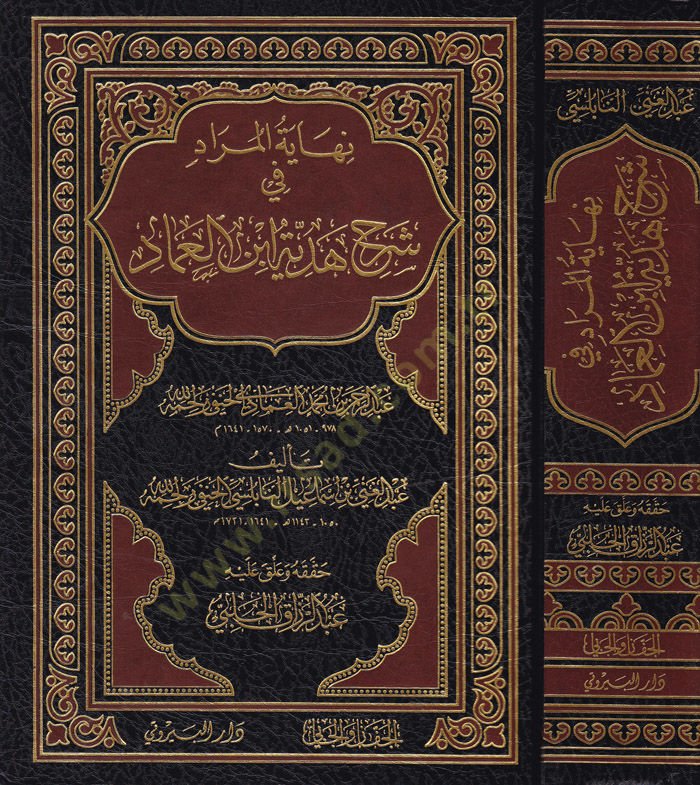 نهاية المراد
في
شرح هدية ابن العماد
عبد الرحمن بن محمد العمادي الحنفي رحمه الله
٩٧٨ - ١٠٥١ هـ - ١٥٧٠ - ١٦٤١ م
تأليف
عبد الغني بن إسماعيل النابلسي الحنفي رحمه الله
١٠٥٠ - ١١٤٣ هـ - ١٦٤١ - ١٧٣١ م
حققه وعلق عليه
عبد الرزاق الحلبي
الجفان والجابي
دار البيروتي
عبد الغني النابلسي
نهاية المراد في
شرح هدية ابن العماد
حققه وعلق عليه
عبد الرزاق الحلبي
الجفان والجابي
دار البيروتي